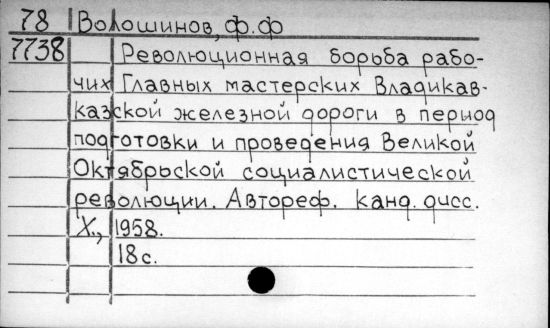 78 Волошинов, ф.ф
7738 Революционная борьба рабо-
чих Главных мастерских Владикав-
казской железной дороги в период
подготовки и проведения Великой
Октябрьской социалистической
революции. Автореф. канд. дисс.
Х., 1958.
18 с.